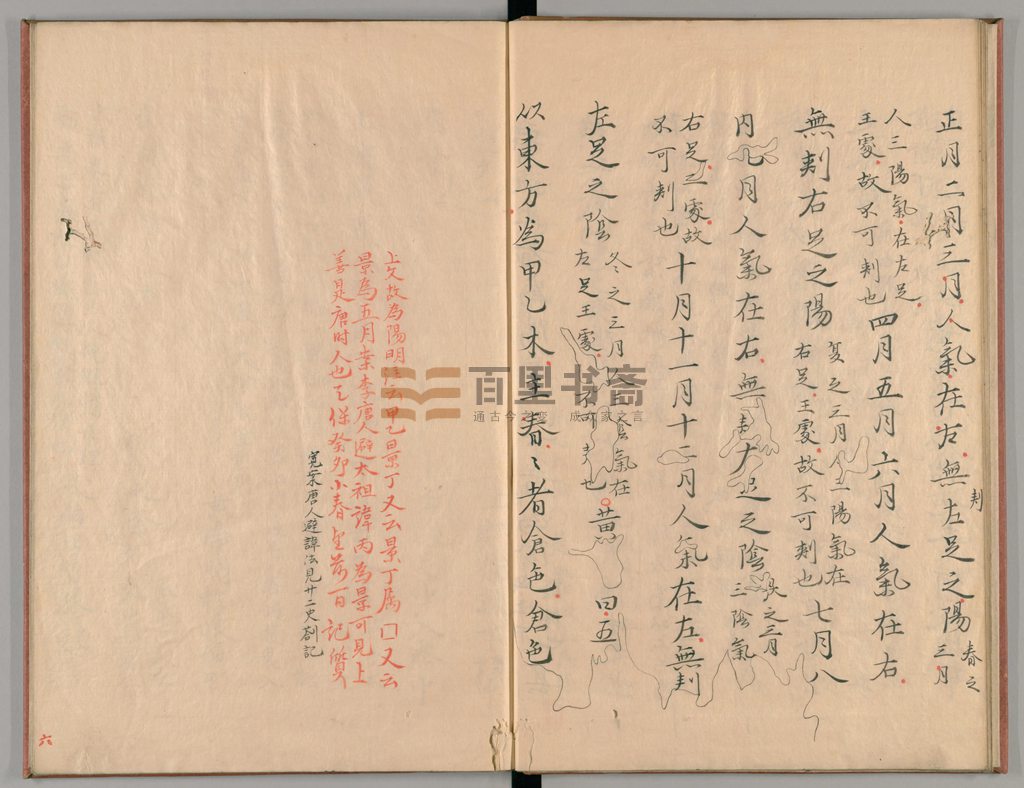 正月二月三月人氣在左無刾左足之陽春之三月
人三陽氣在左足
王處故不可刾也四月五月六月人氣在右
無刾右足之陽夏之三月人三陽氣在
右足王處故不可刾也七月八
月九月人氣在右無刾右足之陰秋之三月三陰氣
右足王處故
不可刾也十月十一月十二月人氣在左無刾
左足之陰冬之三月人三陰氣在
左足王處不可刾也黃曰五
以東方為甲乙木主春〻者倉色倉色
上文故為陽明注云甲乙景丁又云景丁属囗又云
景為五月案李唐人避太祖諱丙為景可見上
善是唐時人也天保癸卯小春望前一日記質
寛案唐人避諱法見廿二史劄記
六
百里书斋
通古今之变 成百家之言